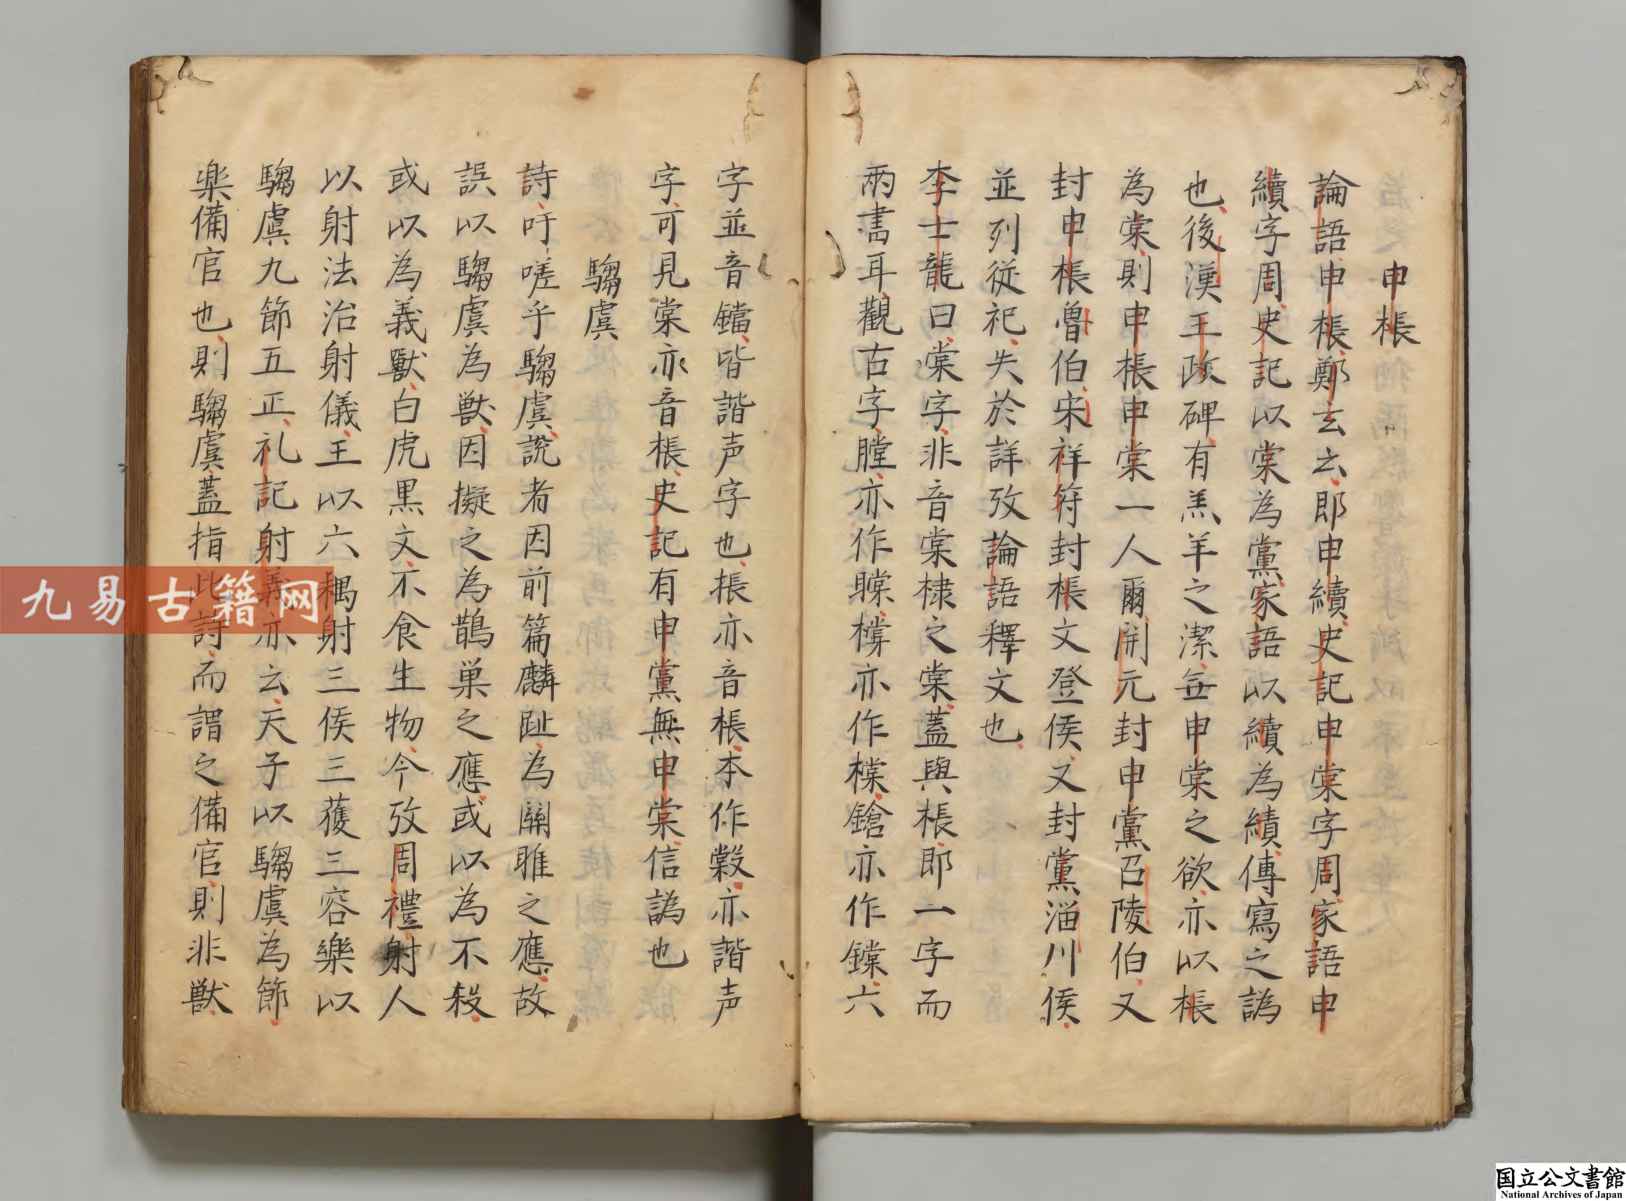 申棖
論語申棖鄭玄云即申續史記申棠字周家語申
續字周史記以棠為黨家語以續為績傳寫之譌
也後漢王政碑有羔羊之潔無申棠之欲亦以棖
為棠則申棖申棠一人爾開元封申黨召陵伯又
封申棖魯伯宋祥符封棖文登侯又封黨淄川侯
並列從祀失於詳攷論語釋文也
李士龍曰棠字非音棠棣之棠蓋與棖即一字而
兩書耳觀古字瞠亦作瞠橕亦作樘鎗亦作鏜六
字並音鐺皆諧声字也棖亦音棖本作榖亦諧声
字可見棠亦音棖史記有申黨無申棠信譌也
騶虞
詩吁嗟乎騶虞說者因前篇麟趾為關雎之應故
誤以騶虞為獸因擬之為鵲巢之應或以為不殺
或以為義獸白虎黒文不食生物今攷周禮射人
以射法治射儀王以六耦射三侯三獲三容樂以
騶虞九節五正礼記射義亦云天子以騶虞為節
樂備官也則騶虞蓋指此詩而謂之備官則非獸
九易古籍网
国立公文書館
National Archives of Japan